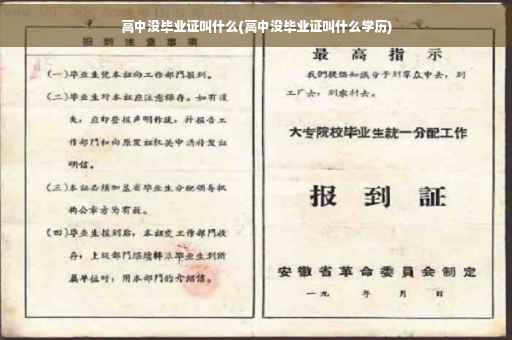 高中没毕业证叫什么(高中没毕业证叫什么学历)
报到注意事项
(一)毕业生凭本证向工作部门报到。
(二)毕业生对本证应注意保存。如有遗
失，应即登报声明作废，并报告工
作部门和向原发证机关申请补发证
明信。
(三)本证必须加盖省毕业生分配领导机
构公章方为有效。
(四)毕业生报到后，本证交工作部门收
存；上级部门继续转派毕业生到所
属单位时，用本部门的介绍信。
最高指示
我们提倡知识分子到群众中去，到
工厂去，到农村去。
大专院校毕业生統一分配工作
报到証
安徽省革命委員会制定
一九 年 月 日